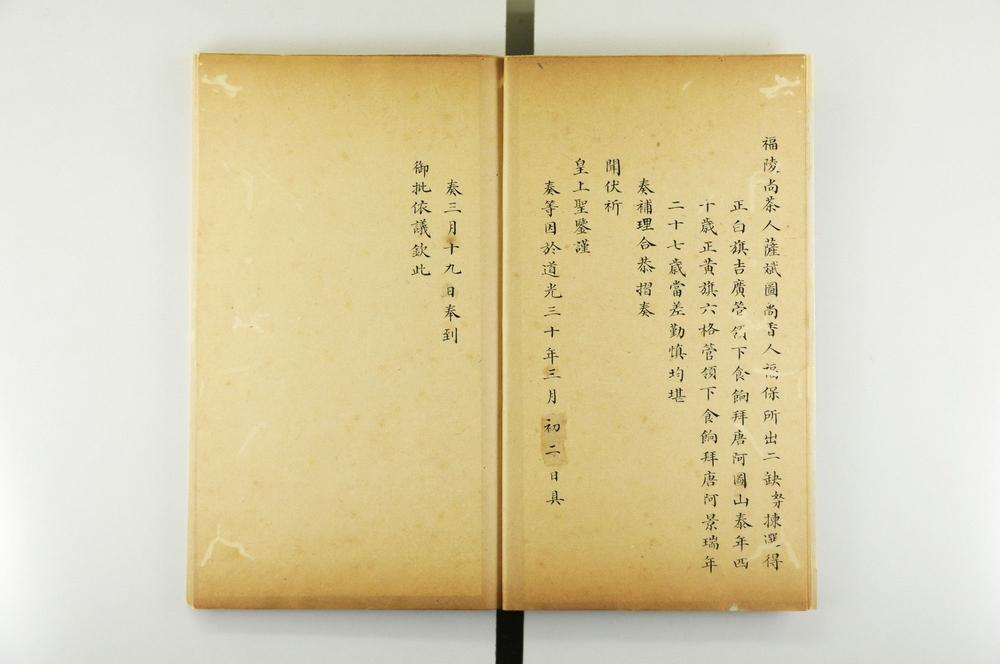 福陵尚茶人薩斌圖尚香人福保所出二缺努揀選得
正白旗吉廣管領下食餉拜唐阿圖山泰年四
十歲正黃旗六格管領下食餉拜唐阿景瑞年
二十七歲當差勤慎均堪
奏補理合恭摺奏
聞伏祈
皇上聖鑒謹
奏等因於道光三十年三月初二日具
奏三月十九日奉到
御批依議欽此